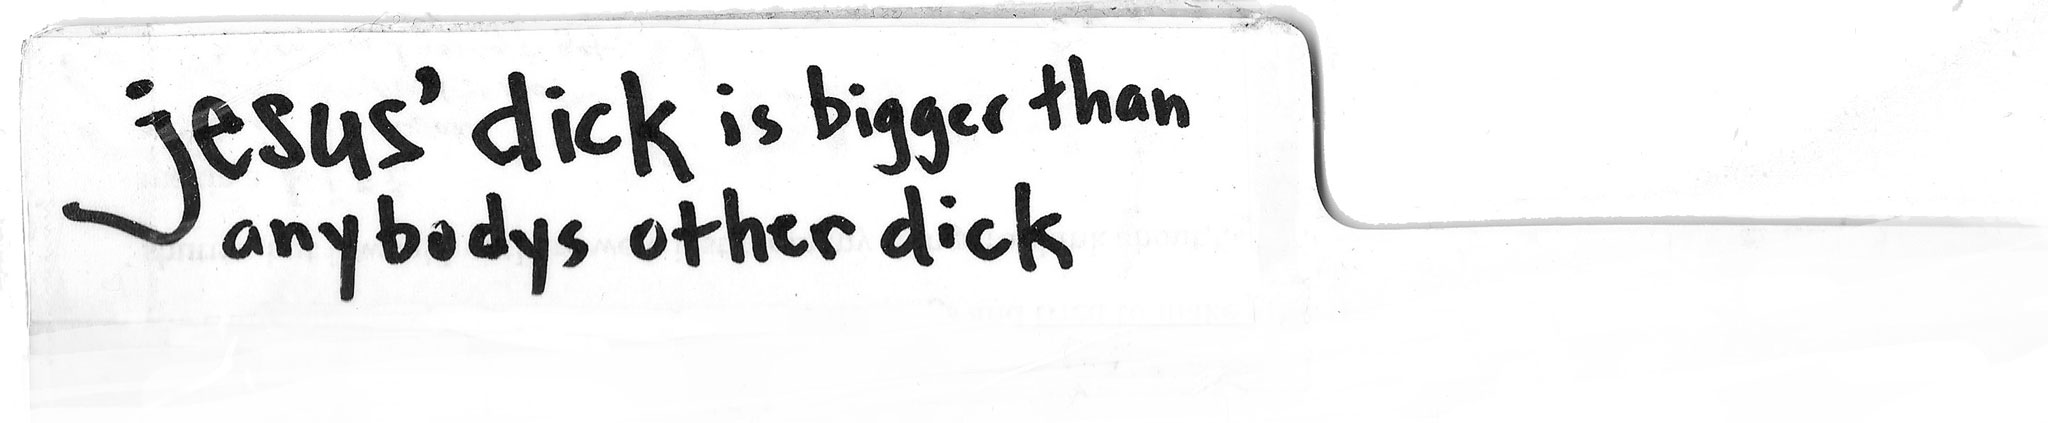 jesus' dick is bigger than
anybodys other dick